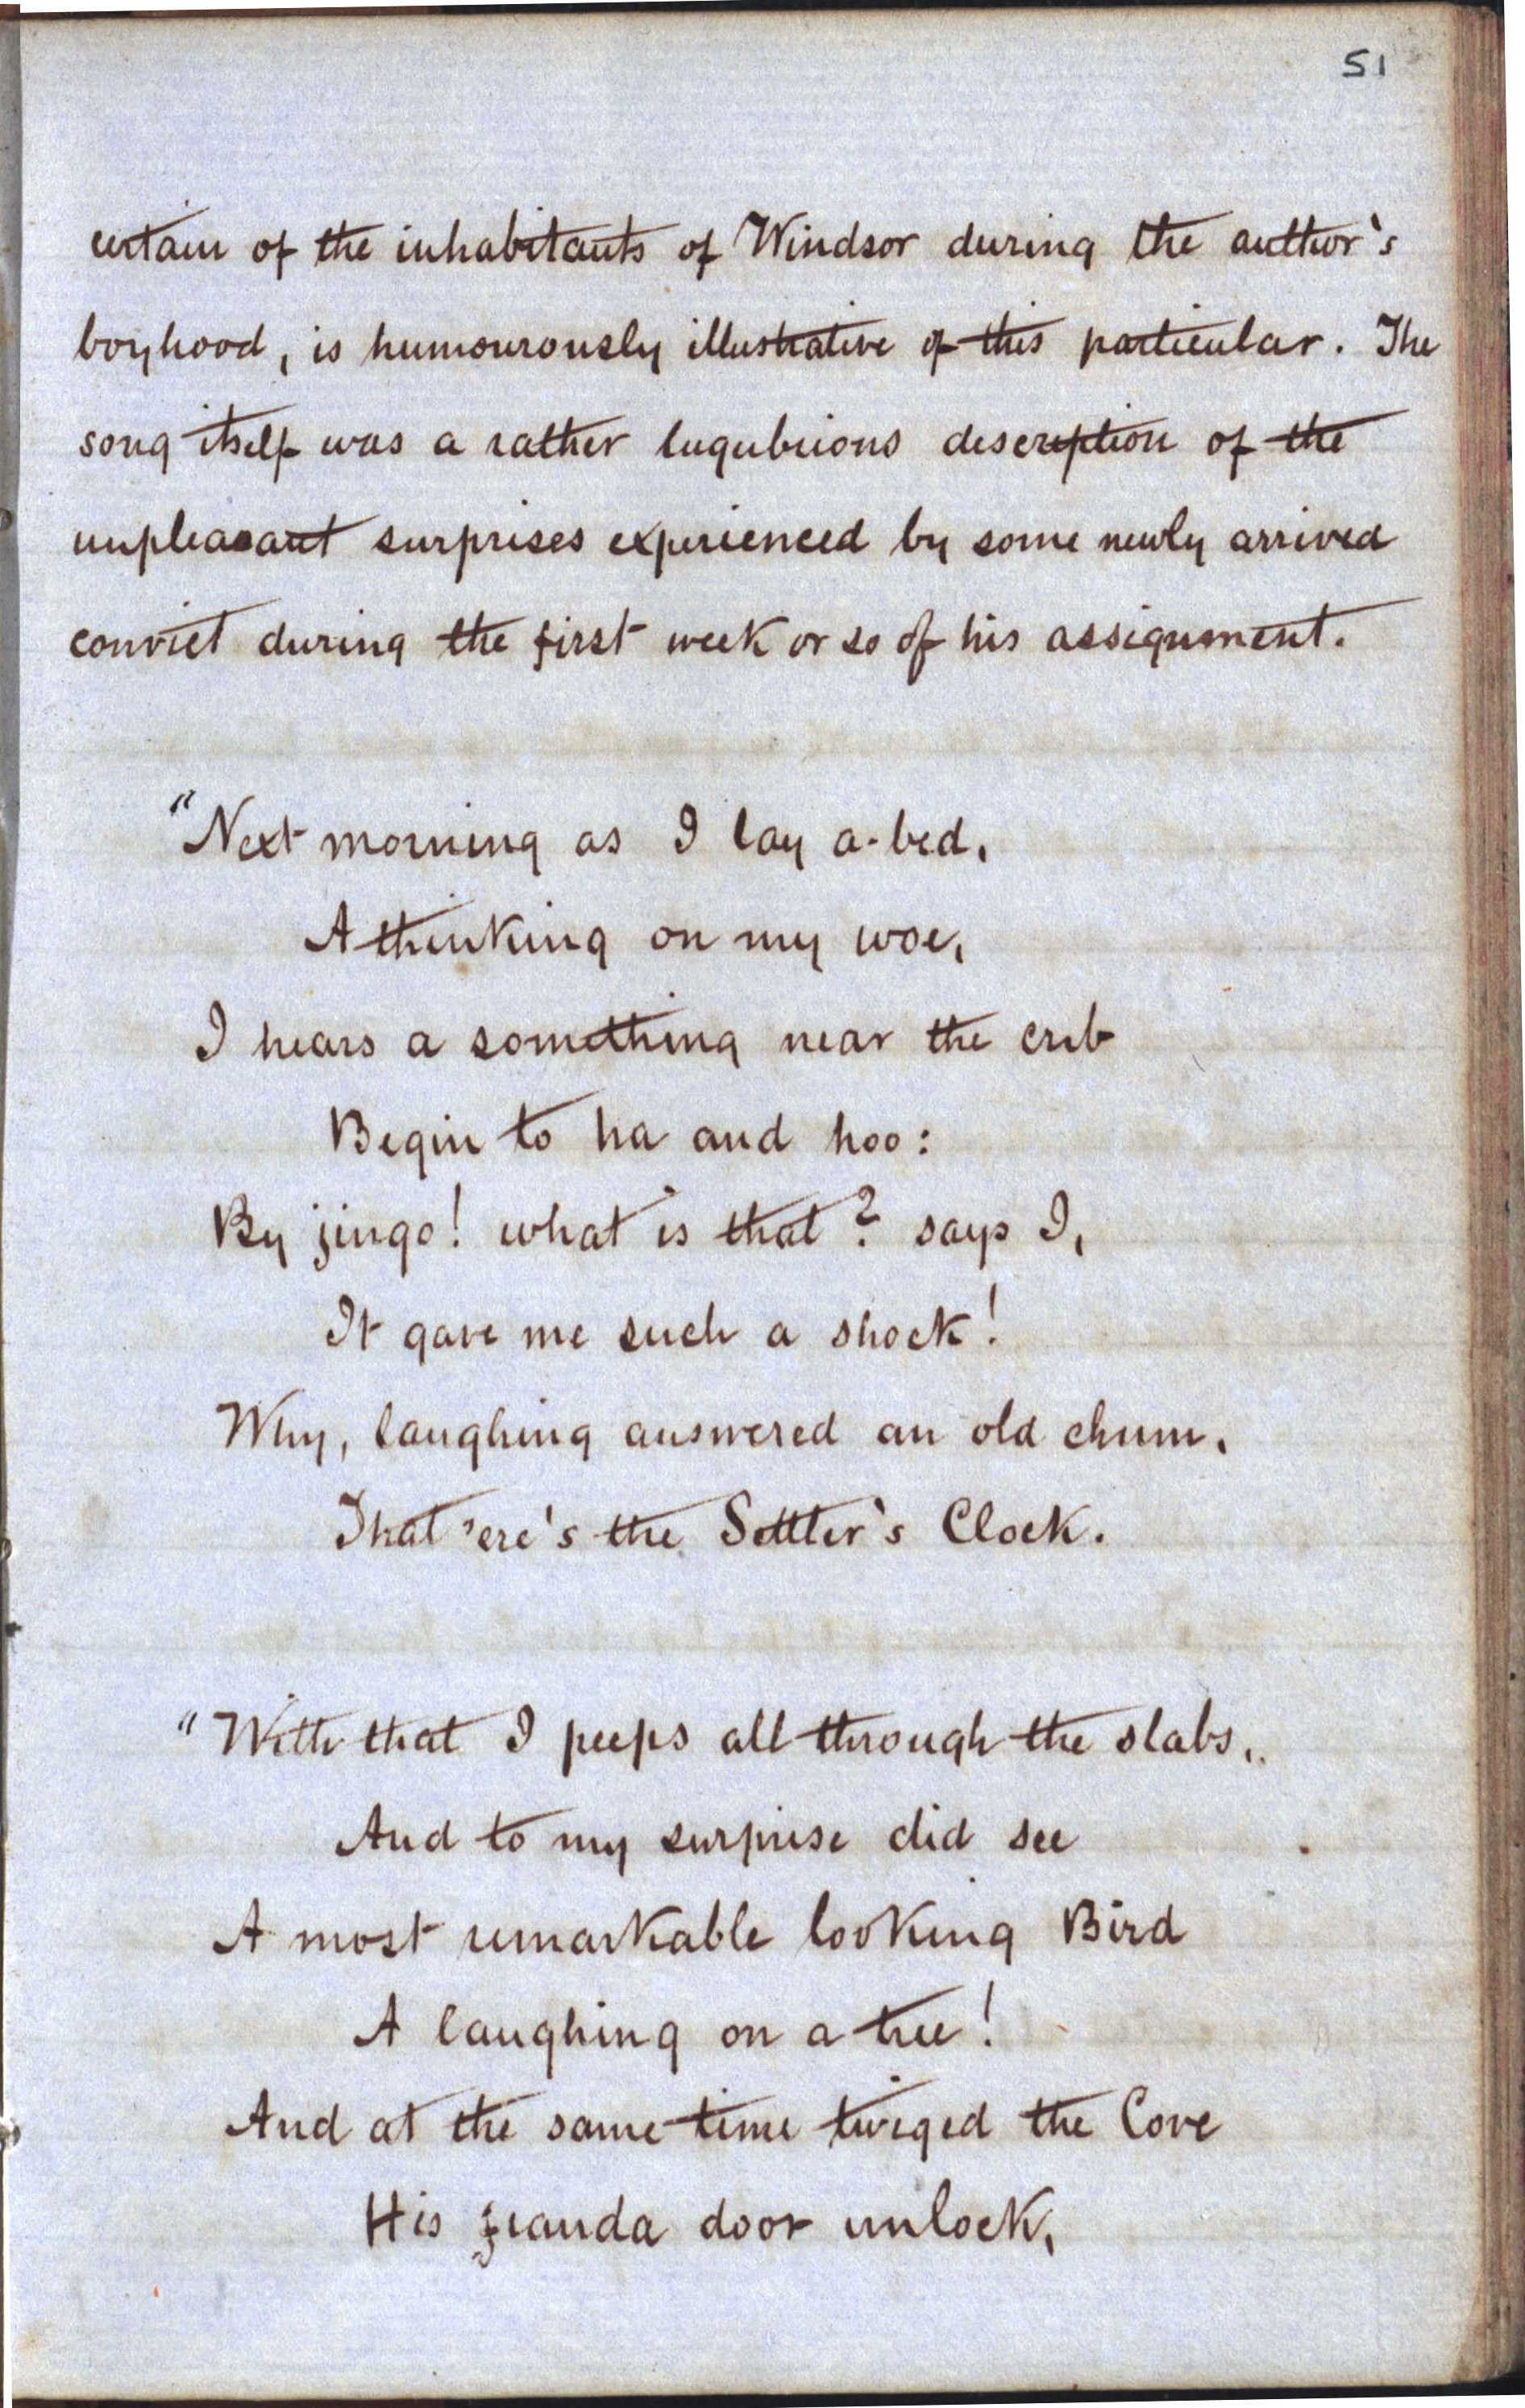 51
certain of the inhabitants of Windsor during the author's
boyhood, is humourously illustrative of this particular. The
song itself was a rather lugubrious description of the
unpleasant surprises experienced by some newly arrived
convict during the first week or so of his assignment.
"Next morning as I lay a-bed,
A thinking on my woe,
I hears a something near the crib
Begin to ha and hoo:
By jingo! what is that? says I,
It gave me such a shock!
Why, laughing answered an old chum,
That 'ere's the Settler's Clock.
"With that I peeps all through the slabs,
And to my surprise did see
A most remarkable looking Bird
A laughing on a tree!
And at the same time twiged the Cove
His door unlock,